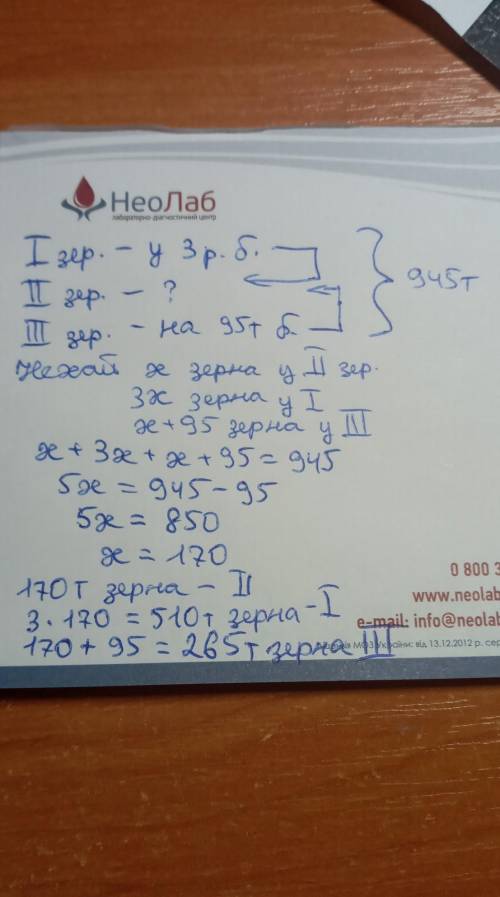 НеоЛаб
лабораторно-діагностичний центр
I зер. – у 3 р. б.
II зер. – ?
III зер. – на 95т б.
945т
Нехай x зерна у II зер.
3x зерна у I
x+95 зерна у III
x + 3x + x + 95 = 945
5x = 945 – 95
5x = 850
x = 170
170т зерна – II
3 · 170 = 510т зерна – I
170 + 95 = 265т зерна III
0 800 3
www.neolab
e-mail: info@neolab
МОЗ України: від 13.12.2012 р. сер